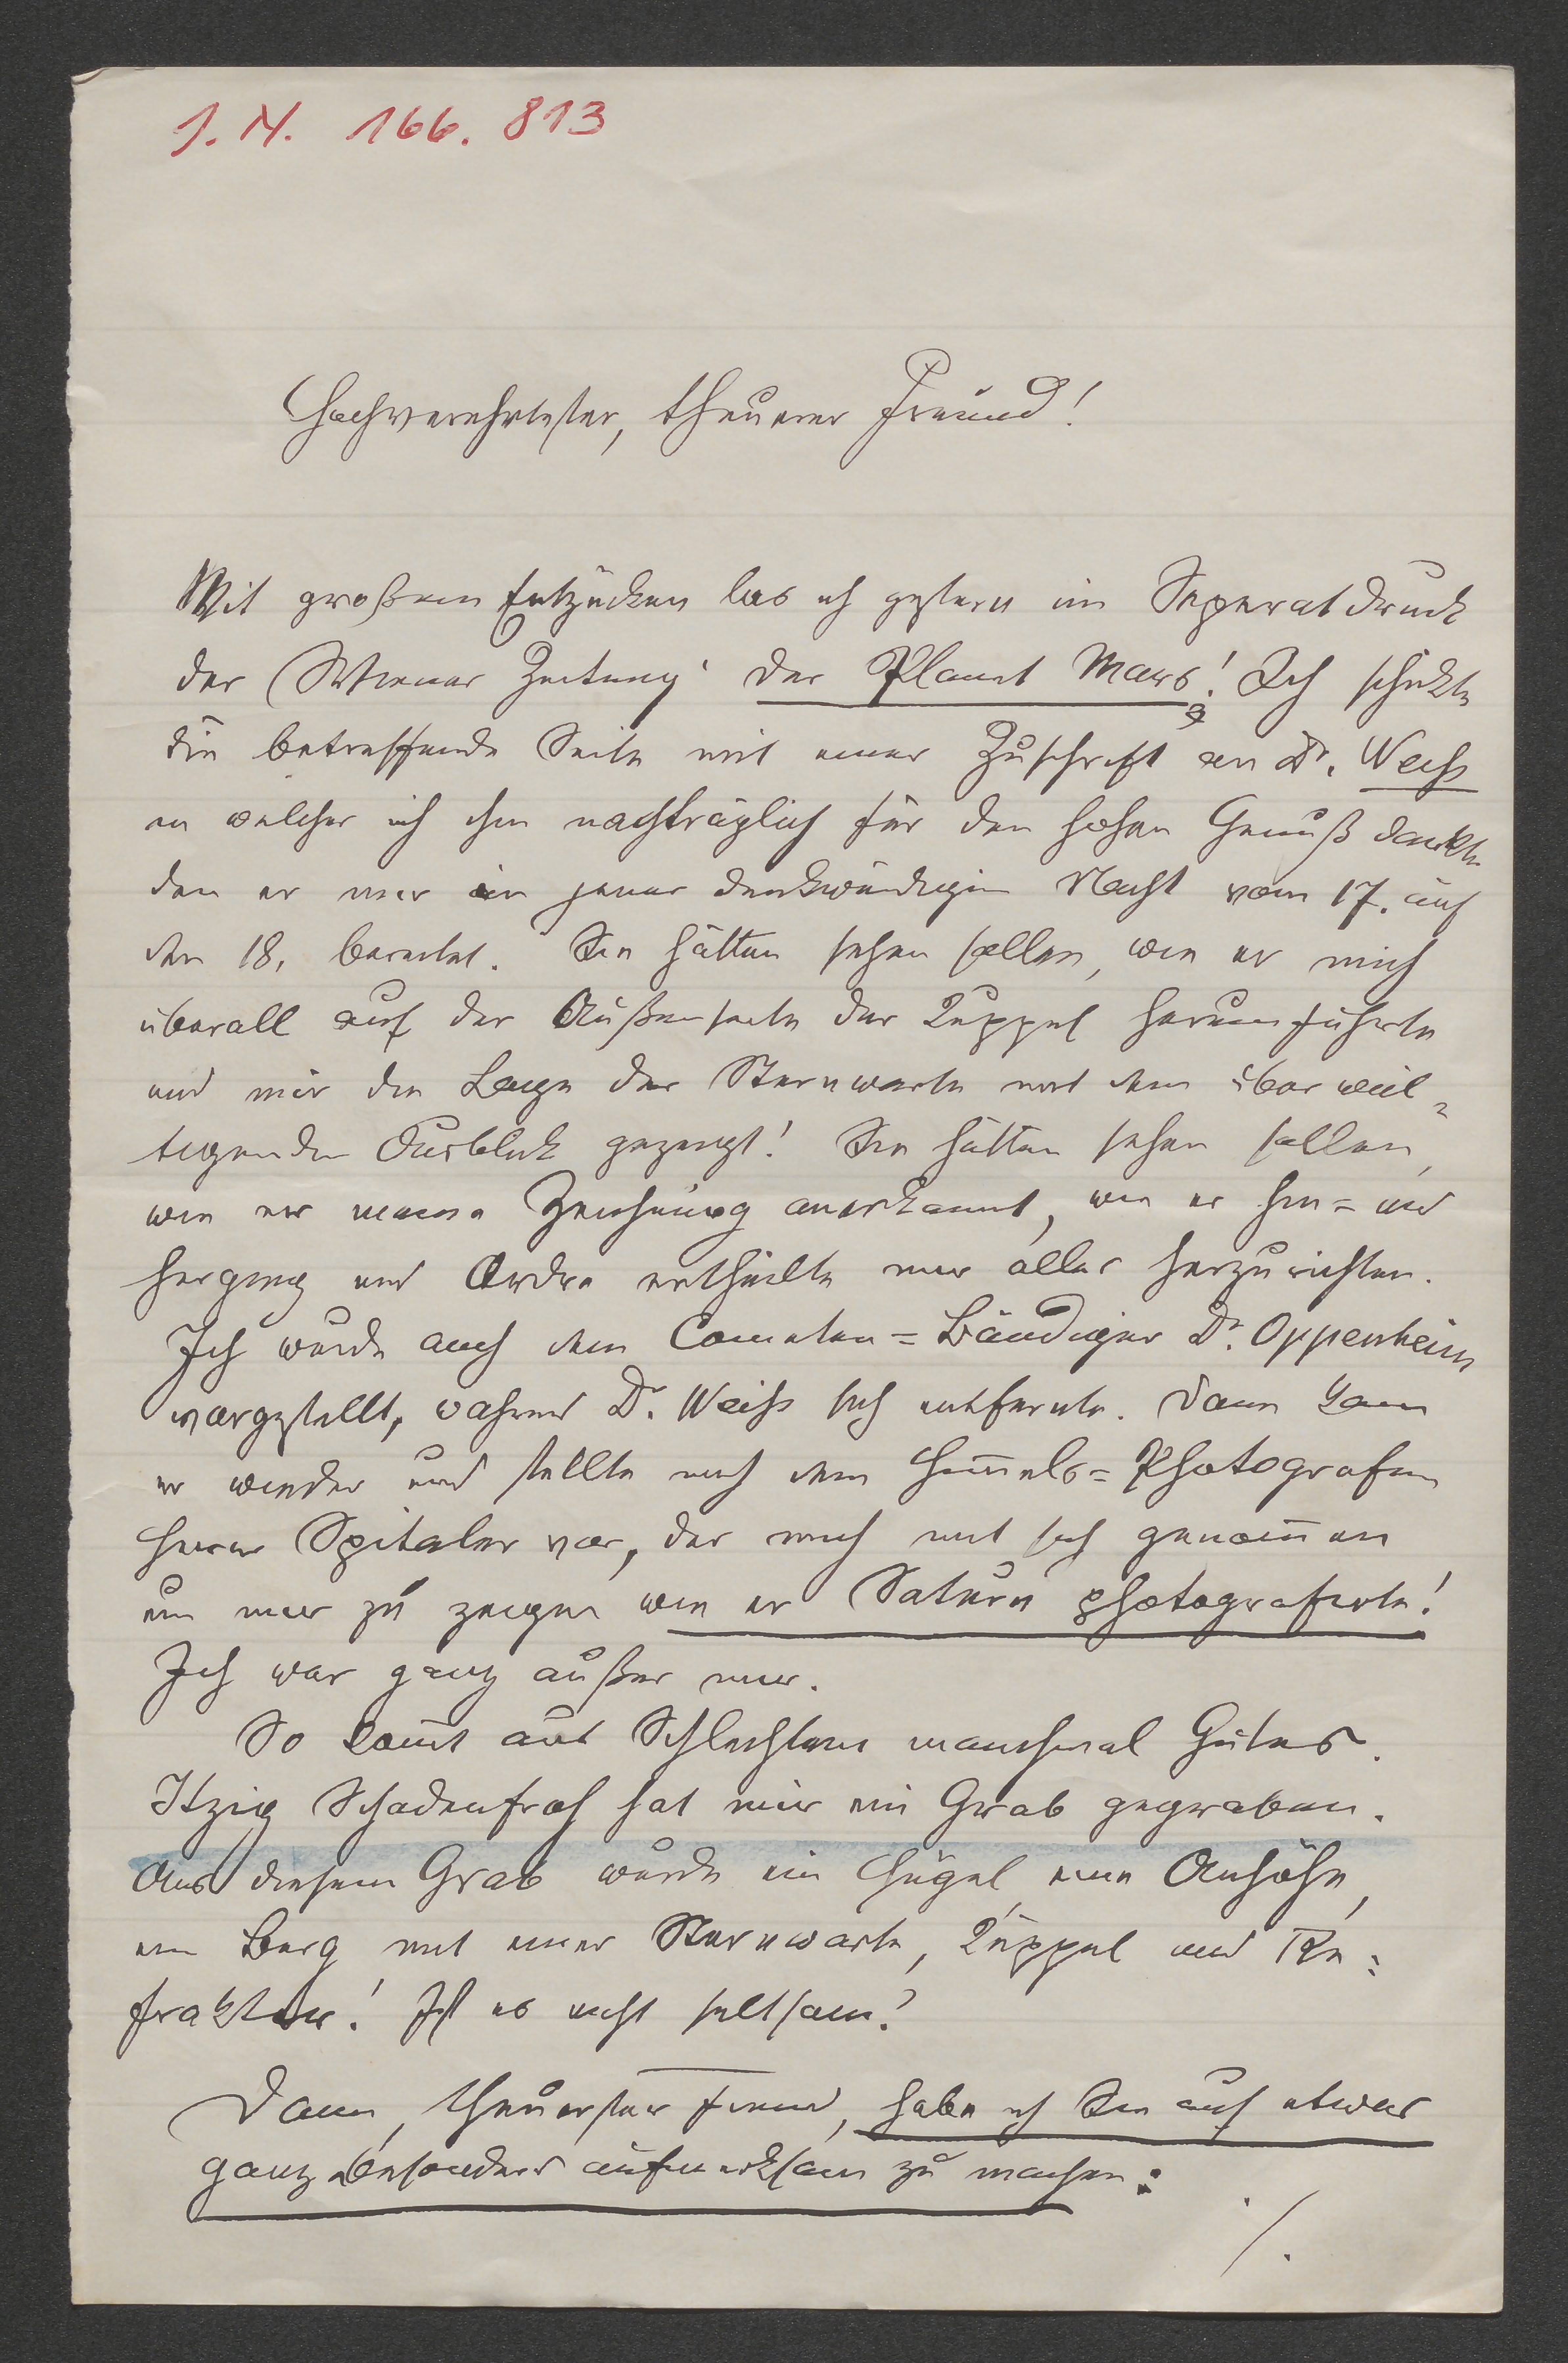 J. N. 166.813
Hochverehrtester, theuerer Freund!
Mit großem Entzücken las ich gestern im Separatdruck
der Wiener Zeitung: der Planet Mars! Ich schickte
die betreffende Seite mit einer Zuschrift an Dr. Weiß
in welcher ich ihm nachträglich für den hohen Genuß dankte
den er mir in jener denkwürdigen Nacht vom 17. auf
den 18. bereitet. Sie hätten sehen sollen, wie er mich
überall auf der Außenseite der Kuppel herumführte
und mir die Lage der Sternwarte mit dem überwäl-
tigenden Ausblick gezeigt! Sie hätten sehen sollen,
wie er meine Zeichnung anerkannt, wie er hin- und
herging und Ordre ertheilte mir alles herzurichten.
Ich wurde auch dem Cometen-Bändiger Dr. Oppenheim
vorgestellt, während Dr. Weiß sich entfernte. Dann kam
er wieder und stellte mich dem Himmels-Photografen
Herrn Spitaler vor, der mich mit sich genommen
um mir zu zeigen wie er Saturn photografirte!
Ich war ganz außer mir.
So kommt aus Schlechtem manchmal Gutes.
Itzig Schadenfroh hat mir ein Grab gegraben.
Aus diesem Grab wurde ein Hügel, eine Anhöhe,
ein Berg mit einer Sternwarte, Kuppel und Re-
fraktor! Ist es nicht seltsam?
Dann, theuerster Freund, habe ich Sie auf etwas
ganz besonders aufmerksam zu machen:
./.